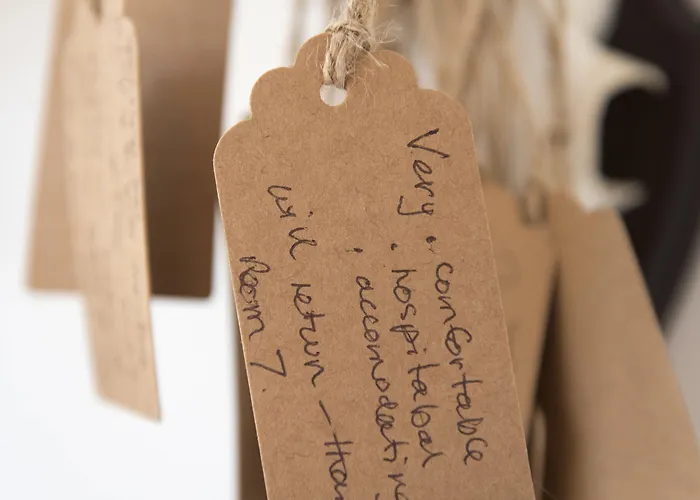 Very • comfortable
• hospitabal
• accomodating
will return – than
Room 7.